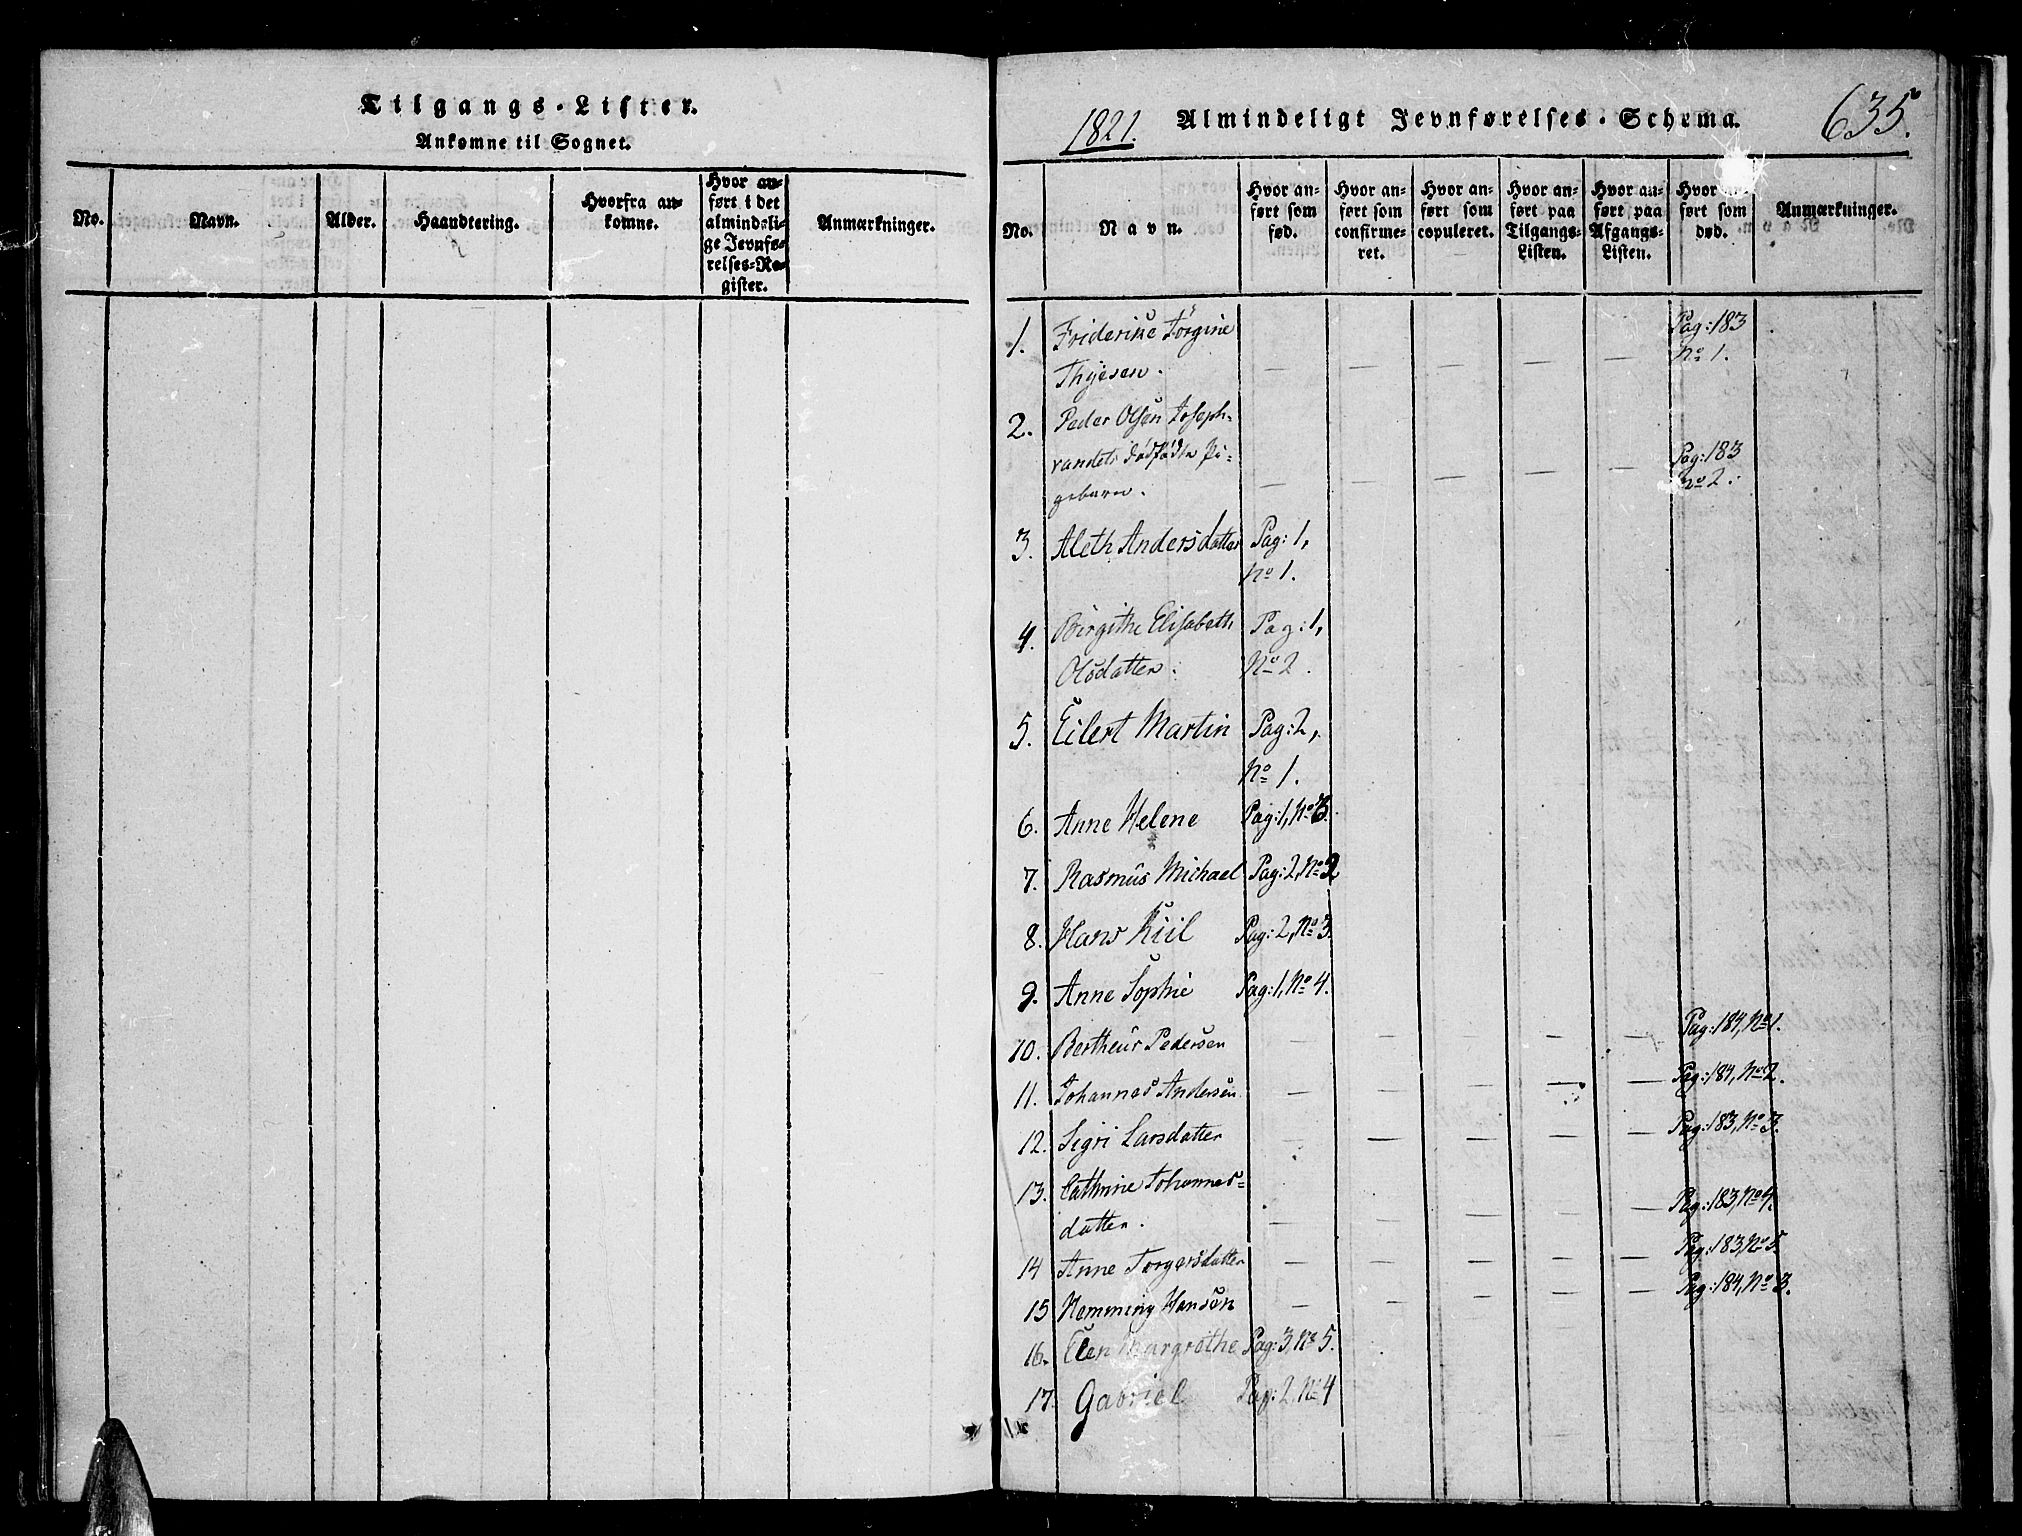 Tilgangs-Lister.
Ankomne til Sognet.
No.
Navn.
Alder.
Haandtering.
Hvorfra an-
komne.
Hvor an-
ført i det
almindeli-
ge Jevnfø-
relses-Re-
gister.
Anmærkninger.
1821. Almindeligt Jevnførelses-Schema. 635.
No.
Navn.
Hvor an-
ført som
fød.
Hvor an-
ført som
confirme-
ret.
Hvor an-
ført som
copuleret.
Hvor an-
ført paa
Tilgangs-
Listen.
Hvor an-
ført paa
Afgangs-
Listen.
Hvor an-
ført som
død.
Anmærkninger.
1. Friderike Jörgine Pag: 183
Thyesen. — — — — — No 1.
2. Peder Olsen Joseph-
vandets dødfødte Pi- Pag: 183
gebarn. — — — — — No 2.
3. Aleth Andersdatter Pag: 1,
No 1.
4. Birgithe Elisabeth Pag: 1,
Olsdatter. No 2.
5. Eilert Martin Pag: 2,
No 1.
6. Anne Helene Pag: 1, No 3.
7. Rasmus Michael Pag: 2, No 2
8. Hans Kiil Pag: 2, No 3.
9. Anne Sophie Pag: 1, No 4.
10. Bertheus Pedersen — — — — — Pag: 184, No 1.
11. Johannes Andersen — — — — — Pag: 184, No 2.
12. Sigri Larsdatter — — — — — Pag: 183, No 3.
13. Cathrine Johannes-
datter. — — — — — Pag: 183, No 4.
14 Anne Torgersdatter — — — — — Pag: 183, No 5
15 Hemming Hansen — — — — — Pag: 184, No 3.
16. Elen Margrethe Pag: 3, No 5.
17. Gabriel Pag: 2, No 4